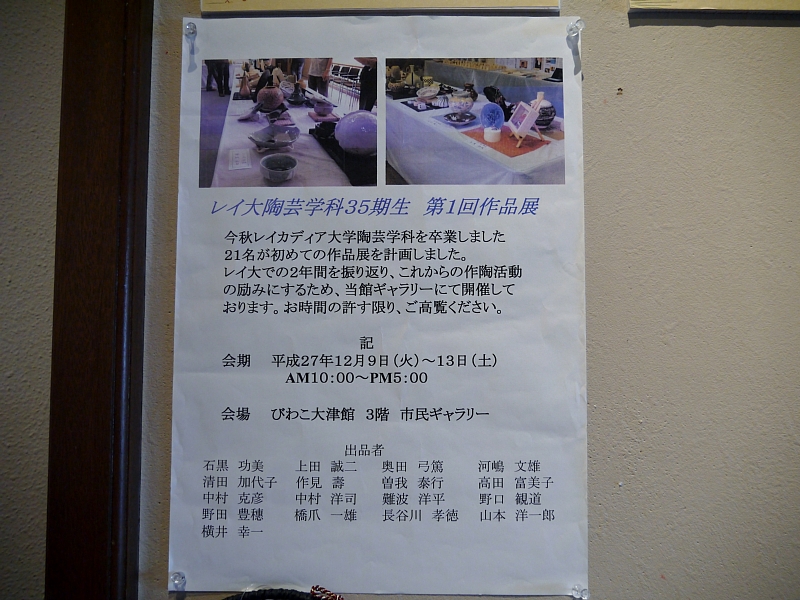 レイ大陶芸学科35期生 第1回作品展
今秋レイカディア大学陶芸学科を卒業しました
21名が初めての作品展を計画しました。
レイ大での2年間を振り返り、これからの作陶活動
の励みにするため、当館ギャラリーにて開催して
おります。お時間の許す限り、ご高覧ください。
記
会期 平成27年12月9日(火)～13日(土)
AM10:00～PM5:00
会場 びわこ大津館 3階 市民ギャラリー
出品者
石黒 功美 上田 誠二 奥田 弓篤 河嶋 文雄
清田 加代子 作見 壽 曽我 泰行 高田 富美子
中村 克彦 中村 洋司 難波 洋平 野口 観道
野田 豊穂 橋爪 一雄 長谷川 孝徳 山本 洋一郎
横井 幸一